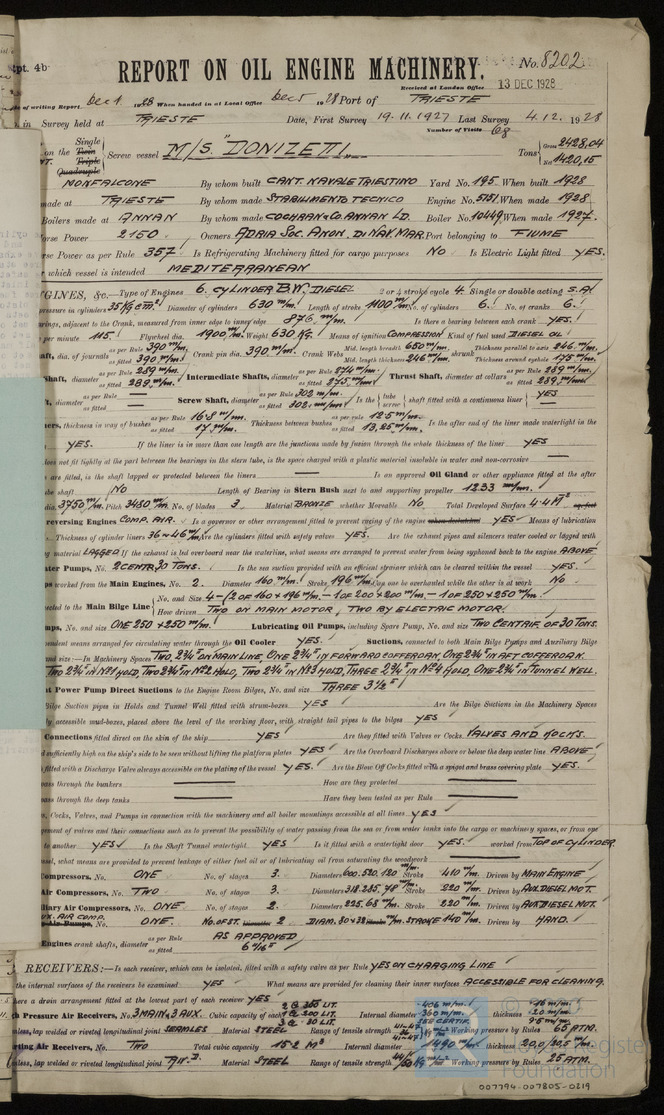 pt. 4b
REPORT ON OIL ENGINE MACHINERY.
No. 8202
Received at London Office
13 DEC 1928
of writing Report. Dec 1 1928 When handed in at Local Office Dec 5 1928 Port of TRIESTE
in Survey held at TRIESTE Date, First Survey 19.11.1927 Last Survey 4.12.1928
Number of Visits 68
on the Single Twin Triple Quadruple Screw vessel M/S. "DONIZETTI" Tons Gross 2428,04 Net 1420,15
MONFALCONE By whom built CANT. NAVALE TRIESTINO Yard No. 195. When built 1928
made at TRIESTE By whom made STABILIMENTO TECNICO Engine No. When made 1928
Boilers made at ANNAN By whom made COCHRAN & Co. ANNAN LD. Boiler No. 10449 When made 1927.
Horse Power 2150 Owners ADRIA SOC. ANON. DI NAV. MAR. Port belonging to FIUME
Horse Power as per Rule 357 Is Refrigerating Machinery fitted for cargo purposes NO Is Electric Light fitted YES.
which vessel is intended MEDITERRANEAN
GINES, &c. Type of Engines 6. CYLINDER B.W. DIESEL 2 or 4 stroke cycle 4. Single or double acting S.A.
pressure in cylinders 35 Kg cm² Diameter of cylinders 630 m/m. Length of stroke 1100 m/m. No. of cylinders 6. No. of cranks 6.
rings, adjacent to the Crank, measured from inner edge to inner edge 876 m/m. Is there a bearing between each crank YES.
per minute 115. Flywheel dia. 1900 m/m. Weight 630 Kg. Means of ignition COMPRESSION Kind of fuel used DIESEL OIL
haft, dia. of journals as per Rule 390 m/m. as fitted 390 m/m. Crank pin dia. 390 m/m. Crank Webs Mid. length breadth 650 m/m. Mid. length thickness 246 m/m. shrunk Thickness parallel to axis 246 m/m. Thickness around eyehole 175 m/m.
Shaft, diameter as per Rule 289 m/m. as fitted 289 m/m. Intermediate Shafts, diameter as per Rule 274 m/m. as fitted 275 m/m. Thrust Shaft, diameter at collars as per Rule 289 m/m. as fitted 289 m/m.
Shaft, diameter as per Rule as fitted Screw Shaft, diameter as per Rule 302 m/m. as fitted 302 m/m. Is the tube screw shaft fitted with a continuous liner YES
ners, thickness in way of bushes as per Rule 16.8 m/m. as fitted 17 m/m. Thickness between bushes as per rule 12.5 m/m. as fitted 13,25 m/m. Is the after end of the liner made watertight in the
YES. If the liner is in more than one length are the junctions made by fusion through the whole thickness of the liner YES
does not fit tightly at the part between the bearings in the stern tube, is the space charged with a plastic material insoluble in water and non-corrosive
are fitted, is the shaft lapped or protected between the liners Is an approved Oil Gland or other appliance fitted at the after
the shaft NO Length of Bearing in Stern Bush next to and supporting propeller 1233 m/m.
dia. 3750 m/m. Pitch 3480 m/m. No. of blades 3 Material BRONZE whether Moveable NO Total Developed Surface 4.4 M²
reversing Engines COMP. AIR. Is a governor or other arrangement fitted to prevent racing of the engine YES Means of lubrication
Thickness of cylinder liners 36÷46 m/m Are the cylinders fitted with safety valves YES. Are the exhaust pipes and silencers water cooled or lagged with
material LAGGED If the exhaust is led overboard near the waterline, what means are arranged to prevent water from being syphoned back to the engine ABOVE
ter Pumps, No. 2 CENTR. 30 TONS. Is the sea suction provided with an efficient strainer which can be cleared within the vessel YES.
ps worked from the Main Engines, No. 2. Diameter 160 m/m. Stroke 196 m/m. Can one be overhauled while the other is at work NO
ected to the Main Bilge Line No. and Size 4-/2 OF 160×196 m/m. - 1 OF 200×200 m/m. - 1 OF 250×250 m/m.
How driven TWO ON MAIN MOTOR, TWO BY ELECTRIC MOTOR.
mps, No. and size ONE 250×250 m/m. Lubricating Oil Pumps, including Spare Pump, No. and size TWO CENTRIF. OF 30 TONS.
endent means arranged for circulating water through the Oil Cooler YES. Suctions, connected to both Main Bilge Pumps and Auxiliary Bilge
nd size:—In Machinery Spaces TWO, 2¾" ON MAIN LINE, ONE 2¾" IN FORWARD COFFERDAM, ONE 2¾" IN AFT COFFERDAM.
TWO 2¾" IN No 1 HOLD, TWO 2¾" IN No 2 HOLD, TWO 2¾" IN No 3 HOLD, THREE 2¾" IN No 4 HOLD, ONE 2¾" IN TUNNEL WELL.
t Power Pump Direct Suctions to the Engine Room Bilges, No. and size THREE 3½"
Bilge Suction pipes in Holds and Tunnel Well fitted with strum-boxes YES Are the Bilge Suctions in the Machinery Spaces
ly accessible mud-boxes, placed above the level of the working floor, with straight tail pipes to the bilges YES
Connections fitted direct on the skin of the ship YES Are they fitted with Valves or Cocks VALVES AND COCKS.
d sufficiently high on the ship's side to be seen without lifting the platform plates YES Are the Overboard Discharges above or below the deep water line ABOVE
fitted with a Discharge Valve always accessible on the plating of the vessel YES. Are the Blow Off Cocks fitted with a spigot and brass covering plate YES.
pass through the bunkers How are they protected
pass through the deep tanks Have they been tested as per Rule
Cocks, Valves, and Pumps in connection with the machinery and all boiler mountings accessible at all times YES
gement of valves and their connections such as to prevent the possibility of water passing from the sea or from water tanks into the cargo or machinery spaces, or from one
to another YES Is the Shaft Tunnel watertight YES Is it fitted with a watertight door YES. worked from TOP OF CYLINDER
ssel, what means are provided to prevent leakage of either fuel oil or of lubricating oil from saturating the woodwork
Compressors, No. ONE No. of stages 3. Diameters 600.520.120 m/m. Stroke 410 m/m. Driven by MAIN ENGINE
Air Compressors, No. TWO No. of stages 3. Diameters Stroke 220 m/m. Driven by AUX. DIESEL MOT.
liary Air Compressors, No. ONE No. of stages 2. Diameters 225.68 m/m. Stroke 220 m/m. Driven by AUX DIESEL MOT.
UX. AIR COMP. No. ONE. No. OF ST. 2 DIAM. 80×32 STROKE 140 m/m. Driven by HAND.
Engines crank shafts, diameter as per Rule AS APPROVED as fitted
RECEIVERS:—Is each receiver, which can be isolated, fitted with a safety valve as per Rule YES ON CHARGING LINE
the internal surfaces of the receivers be examined YES What means are provided for cleaning their inner surfaces ACCESSIBLE FOR CLEANING.
here a drain arrangement fitted at the lowest part of each receiver YES
h Pressure Air Receivers, No. 3 MAIN, 3 AUX. Cubic capacity of each Internal diameter thickness
mless, lap welded or riveted longitudinal joint SEAMLESS Material STEEL Range of tensile strength Working pressure by Rules 65 ATM.
rting Air Receivers, No. TWO Total cubic capacity 15.2 M³ Internal diameter 1490 m/m. thickness 20,0/20,5 m/m.
mless, lap welded or riveted longitudinal joint Material STEEL Range of tensile strength Working pressure by Rules 25 ATM.
Foundation
007794-007805-0219